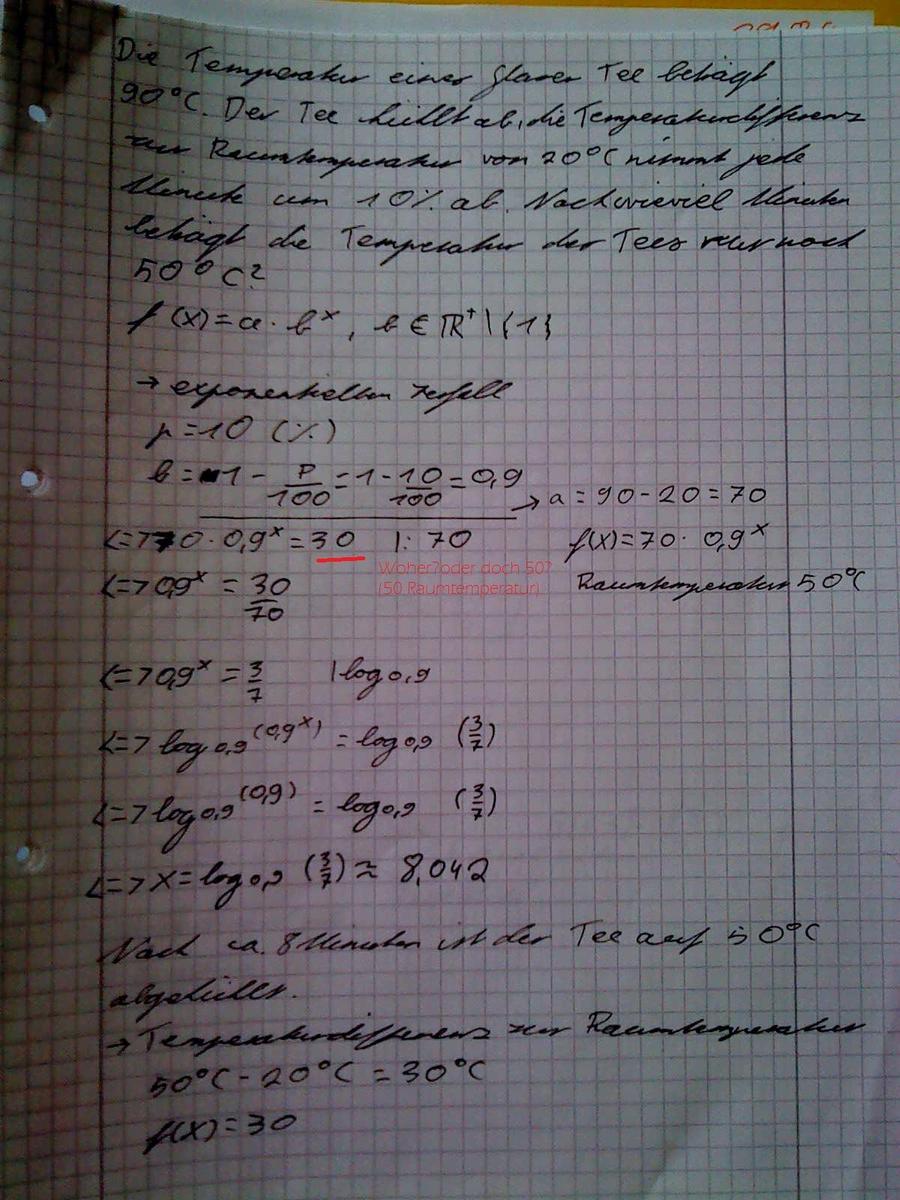 Die Temperatur eines Glases Tee beträgt
90°C. Der Tee kühlt ab, die Temperaturdifferenz
zur Raumtemperatur von 20°C nimmt jede
Minute um 10% ab. Nach wieviel Minuten
beträgt die Temperatur des Tees nur noch
50°C?
f(x)=a·b^x, b∈ℝ⁺\{1}
→ exponentieller Zerfall
p=10 (%)
b=1-p/100=1-10/100=0,9
→ a=90-20=70
<=>70·0,9^x=30 |:70
f(x)=70·0,9^x
Woher?oder doch 50?
(50 Raumtemperatur)
Raumtemperatur 50°C
<=>0,9^x=30/70
<=>0,9^x=3/7 |log0,9
<=>log0,9(0,9^x)=log0,9 (3/7)
<=>log0,9(0,9)=log0,9 (3/7)
<=>x=log0,9 (3/7)≈8,042
Nach ca. 8 Minuten ist der Tee auf 50°C
abgekühlt.
→ Temperaturdifferenz zur Raumtemperatur
50°C-20°C=30°C
f(x)=30